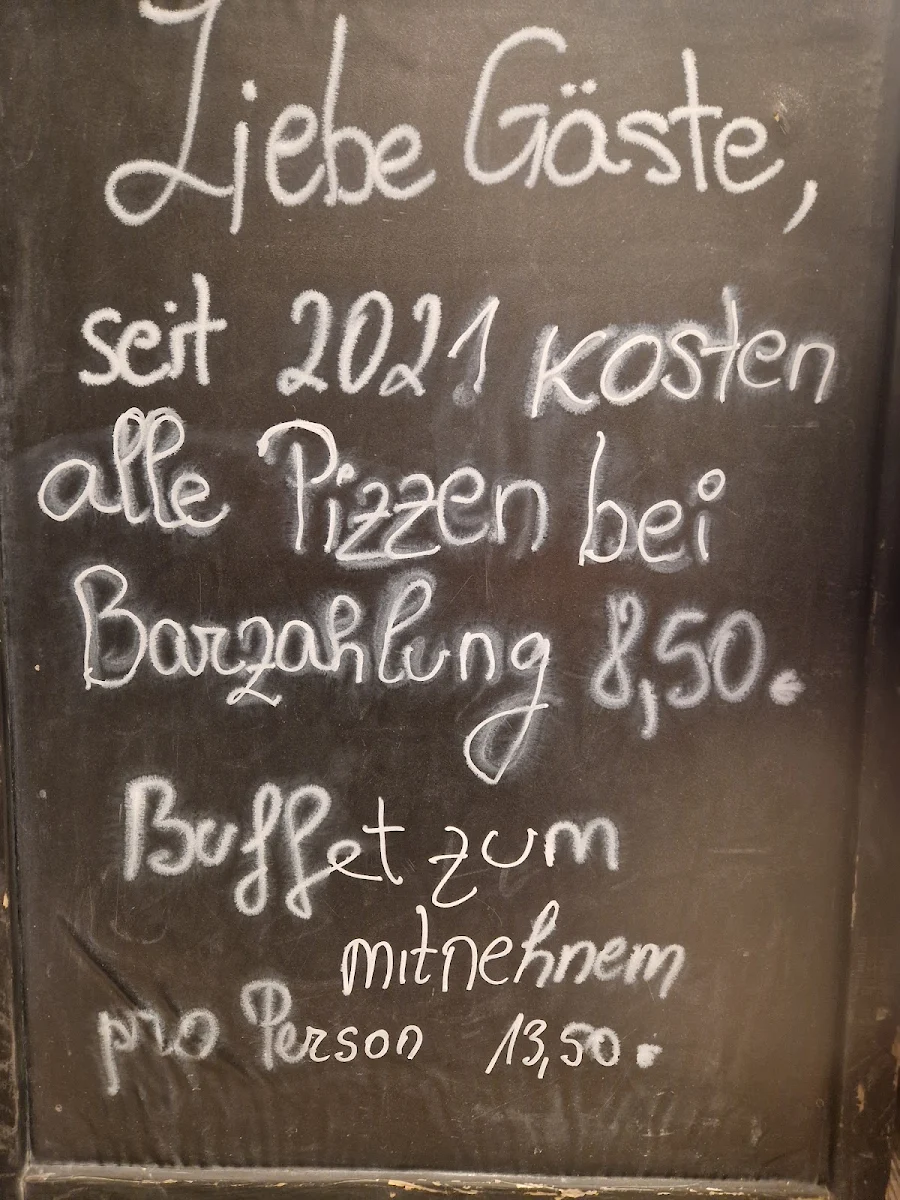 Liebe Gäste,
seit 2021 kosten
alle Pizzen bei
Barzahlung 8,50.€
Buffet zum
mitnehnem
pro Person 13,50.€